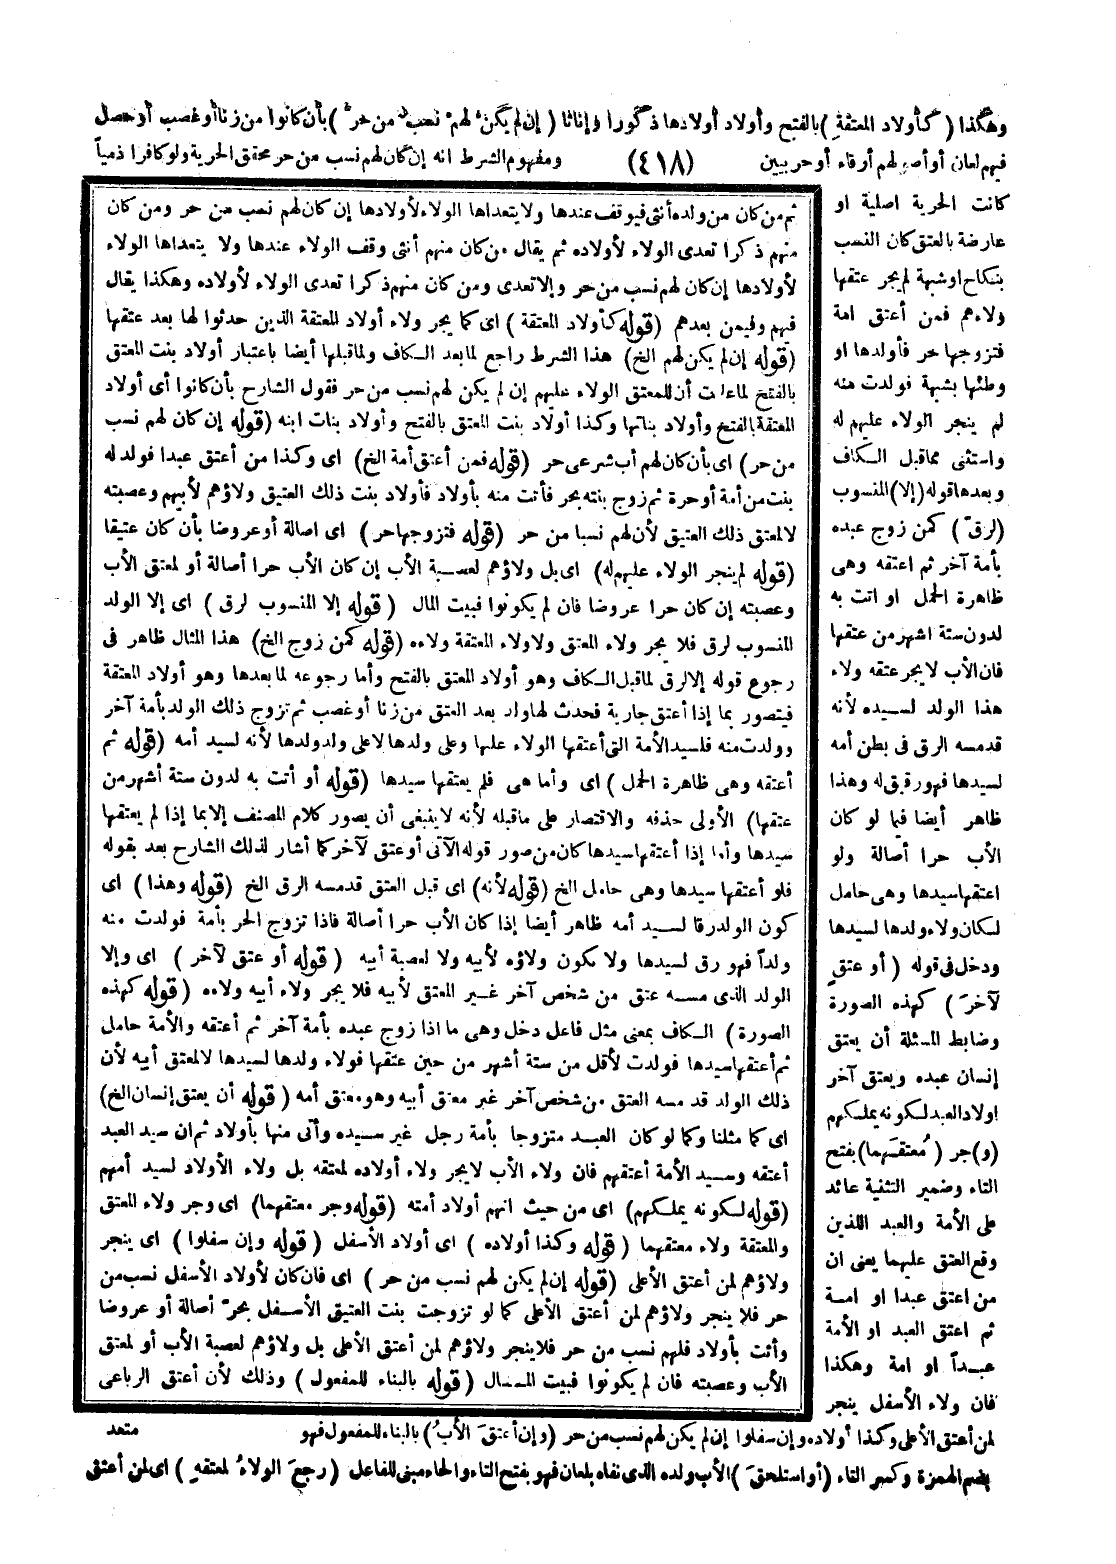 وهكذا (كأولاد المعتقة) بالفتح وأولاد أولادها ذكورا وإناثا (إن لم يكن لهم نسب من حر) بأن كانوا من زنا أو غصب أو حصل
فيهم لعان أو أصولهم أرقاء أو حربيين (٤١٨) ومفهوم الشرط انه إن كان لهم نسب من حر محقق الحرية ولو كافرا ذمياً
كانت الحرية اصلية او
عارضة بالعتق كان النسب
بنكاح او شبهة لم يجر عتقها
ولاءهم فمن أعتق امة
فتزوجها حر فأولدها او
وطئها بشبهة فولدت منه
لم ينجر الولاء عليهم له
واستثنى مما قبل الكاف
وبعدها قوله (إلا) المنسوب
(لرق) كمن زوج عبده
بأمة آخر ثم اعتقه وهى
ظاهرة الحمل او اتت به
لدون ستة اشهر من عتقها
فان الأب لا يجر عتقه ولاء
هذا الولد لسيده لأنه
قد مسه الرق فى بطن أمه
لسيدها فهو رقيق له وهذا
ظاهر أيضا فيما لو كان
الأب حرا أصالة ولو
اعتقها سيدها وهى حامل
لكان ولاء ولدها لسيدها
ودخل فى قوله (أو عتقٍ
لآخرَ) كهذه الصورة
وضابط المسئلة أن يعتق
إنسان عبده ويعتق آخر
اولاد العبد لكونه يملكهم
(و) جر (مُعتقَهما) بفتح
التاء وضمير التثنية عائد
على الأمة والعبد اللذين
وقع العتق عليهما يعنى ان
من اعتق عبدا او امة
ثم اعتق العبد او الأمة
عبداً او امة وهكذا
فان ولاء الأسفل ينجر
ثم من كان من ولده أنثى فيوقف عندها ولا يتعداها الولاء لأولادها إن كان لهم نسب من حر ومن كان
منهم ذكرا تعدى الولاء لأولاده ثم يقال من كان منهم أنثى وقف الولاء عندها ولا يتعداها الولاء
لأولادها إن كان لهم نسب من حر وإلا تعدى ومن كان منهم ذكرا تعدى الولاء لأولاده وهكذا يقال
فيهم وفيمن بعدهم (قوله كأولاد المعتقة) اى كما يجر ولاء أولاد المعتقة الذين حدثوا لها بعد عتقها
(قوله إن لم يكن لهم الخ) هذا الشرط راجع لما بعد الكاف ولما قبلها أيضا باعتبار أولاد بنت المعتق
بالفتح لما علمت أن للمعتق الولاء عليهم إن لم يكن لهم نسب من حر فقول الشارح بأن كانوا أى أولاد
المعتقة بالفتح وأولاد بناتها وكذا أولاد بنت المعتق بالفتح وأولاد بنات ابنه (قوله إن كان لهم نسب
من حر) اى بأن كان لهم أب شرعى حر (قوله فمن أعتق أمة الخ) اى وكذا من أعتق عبدا فولد له
بنت من أمة أو حرة ثم زوج بنته بحر فأتت منه بأولاد فأولاد بنت ذلك العتيق ولاؤهم لأبيهم وعصبته
لا لمعتق ذلك العتيق لأن لهم نسبا من حر (قوله فتزوجها حر) اى اصالة أو عروضا بأن كان عتيقا
(قوله لم ينجر الولاء عليهم له) اى بل ولاؤهم لعصبة الأب إن كان الأب حرا أصالة أو لمعتق الأب
وعصبته إن كان حرا عروضا فان لم يكونوا فبيت المال (قوله إلا المنسوب لرق) اى إلا الولد
المنسوب لرق فلا يجر ولاء المعتق ولا ولاء المعتقة ولاءه (قوله كمن زوج الخ) هذا المثال ظاهر فى
رجوع قوله إلا لرق لما قبل الكاف وهو أولاد المعتق بالفتح وأما رجوعه لما بعدها وهو أولاد المعتقة
فيتصور بما إذا أعتق جارية فحدث لها ولد بعد العتق من زنا أو غصب ثم تزوج ذلك الولد بأمة آخر
وولدت منه فلسيد الأمة التى أعتقها الولاء عليها وعلى ولدها لا على ولد ولدها لأنه لسيد أمه (قوله ثم
أعتقه وهى ظاهرة الحمل) اى وأما هى فلم يعتقها سيدها (قوله أو أتت به لدون ستة أشهر من
عتقها) الأولى حذفه والاقتصار على ما قبله لأنه لا ينبغى أن يصور كلام المصنف إلا بما إذا لم يعتقها
سيدها وأما إذا أعتقها سيدها كان من صور قوله الآتى أو عتق لآخر كما أشار لذلك الشارح بعد بقوله
فلو أعتقها سيدها وهى حامل الخ (قوله لأنه) اى قبل العتق قد مسه الرق الخ (قوله وهذا) اى
كون الولد رقا لسيد أمه ظاهر أيضا إذا كان الأب حرا أصالة فاذا تزوج الحر بأمة فولدت منه
ولداً فهو رق لسيدها ولا يكون ولاؤه لأبيه ولا لعصبة أبيه (قوله أو عتق لآخر) اى وإلا
الولد الذى مسه عتق من شخص آخر غير المعتق لأبيه فلا يجر ولاء أبيه ولاءه (قوله كهذه
الصورة) الكاف بمعنى مثل فاعل دخل وهى ما اذا زوج عبده بأمة آخر ثم أعتقه والأمة حامل
ثم أعتقها سيدها فولدت لأقل من ستة أشهر من حين عتقها فولاء ولدها لسيدها لا لمعتق أبيه لأن
ذلك الولد قد مسه العتق من شخص آخر غير معتق أبيه وهو معتق أمه (قوله أن يعتق إنسان الخ)
اى كما مثلنا وكما لو كان العبد متزوجا بأمة رجل غير سيده وأتى منها بأولاد ثم ان سيد العبد
أعتقه وسيد الأمة أعتقهم فان ولاء الأب لا يجر ولاء أولاده لمعتقه بل ولاء الأولاد لسيد أمهم
(قوله لكونه يملكهم) اى من حيث انهم أولاد أمته (قوله وجر معتقهما) اى وجر ولاء المعتق
والمعتقة ولاء معتقهما (قوله وكذا أولاده) اى أولاد الأسفل (قوله وإن سفلوا) اى ينجر
ولاؤهم لمن أعتق الأعلى (قوله إن لم يكن لهم نسب من حر) اى فان كان لأولاد الأسفل نسب من
حر فلا ينجر ولاؤهم لمن أعتق الأعلى كما لو تزوجت بنت العتيق الأسفل بحر أصالة أو عروضا
وأتت بأولاد فلهم نسب من حر فلا ينجر ولاؤهم لمن أعتق الأعلى بل ولاؤهم لعصبة الأب أو لمعتق
الأب وعصبته فان لم يكونوا فبيت المال (قوله بالبناء للمفعول) وذلك لأن أعتق الرباعى
متعد
لمن أعتق الأعلى وكذا أولاده وإن سفلوا إن لم يكن لهم نسب من حر (وإن أعتقَ الأبُ) بالبناء للمفعول فهو
بضم الهمزة وكسر التاء (أو استلحقَ) الأب ولده الذى نفاه بلعان فهو بفتح التاء والحاء مبنى للفاعل (رجعَ الولاءُ لمعتقهِ) اى لمن أعتق